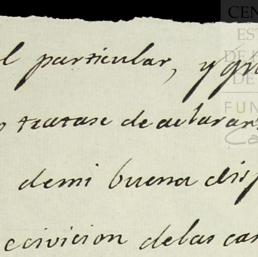 l particular, y
tratase de aclarar
demi buena disp
ccivicion delas cas
CEN
ES
DE
DE
FUN
Ca